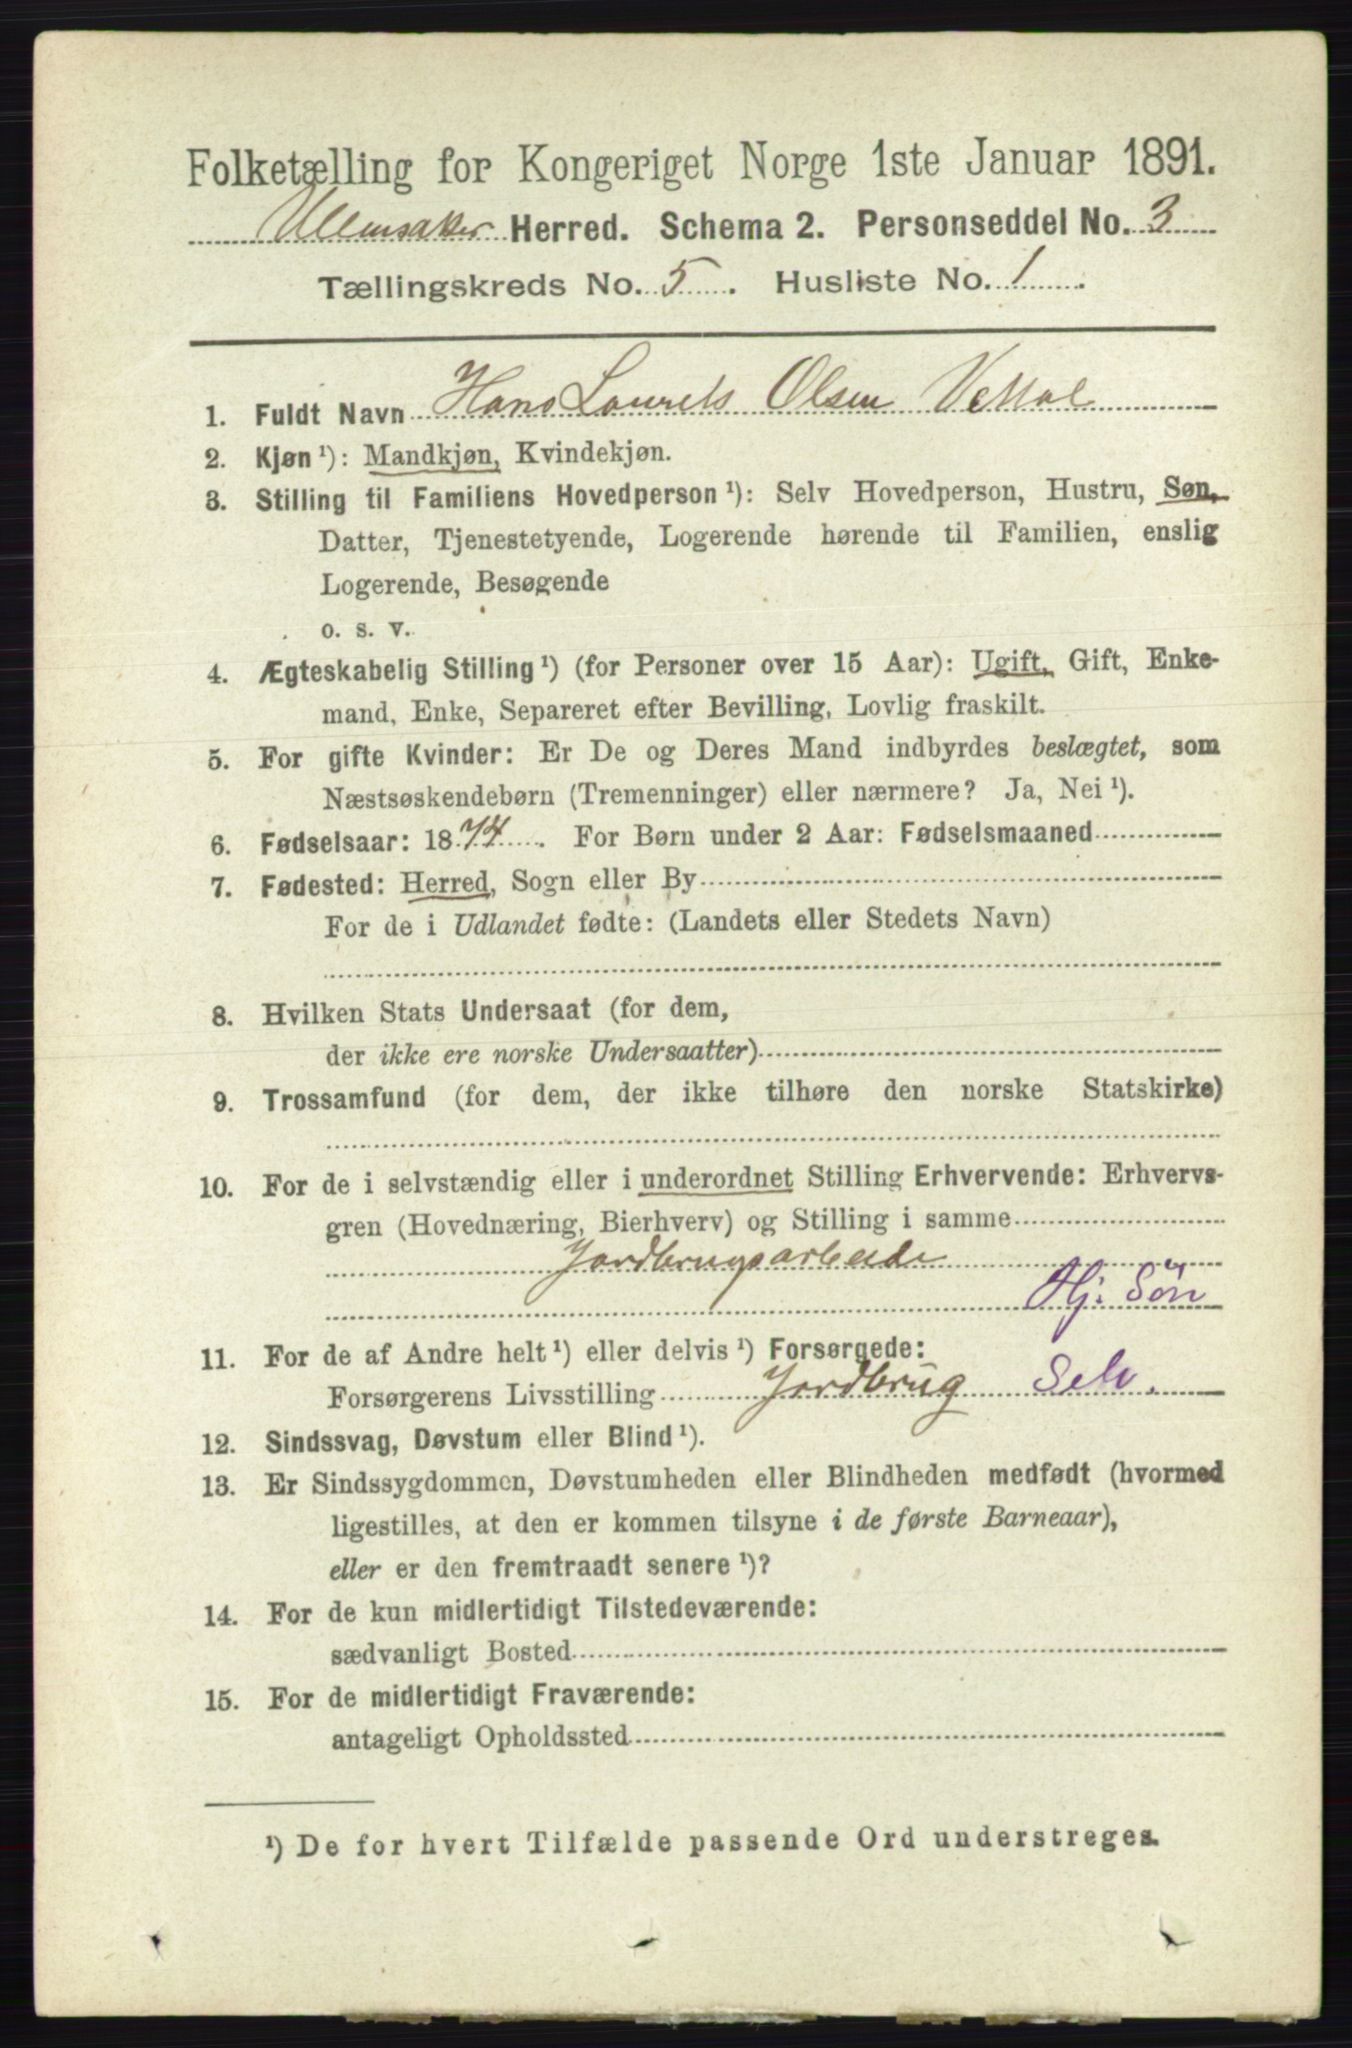 Folketælling for Kongeriget Norge 1ste Januar 1891.
Ullensaker Herred. Schema 2. Personseddel No. 3
Tællingskreds No. 5. Husliste No. 1.
1. Fuldt Navn Hans Laurets Olsen
2. Kjøn ¹): Mandkjøn, Kvindekjøn.
3. Stilling til Familiens Hovedperson ¹): Selv Hovedperson, Hustru, Søn,
Datter, Tjenestetyende, Logerende hørende til Familien, enslig
Logerende, Besøgende
o. s. v.
4. Ægteskabelig Stilling ¹) (for Personer over 15 Aar): Ugift, Gift, Enke-
mand, Enke, Separeret efter Bevilling, Lovlig fraskilt.
5. For gifte Kvinder: Er De og Deres Mand indbyrdes beslægtet, som
Næstsøskendebørn (Tremenninger) eller nærmere? Ja, Nei ¹).
6. Fødselsaar: 1874. For Børn under 2 Aar: Fødselsmaaned
7. Fødested: Herred, Sogn eller By
For de i Udlandet fødte: (Landets eller Stedets Navn)
8. Hvilken Stats Undersaat (for dem,
der ikke ere norske Undersaatter)
9. Trossamfund (for dem, der ikke tilhøre den norske Statskirke)
10. For de i selvstændig eller i underordnet Stilling Erhvervende: Erhvervs-
gren (Hovednæring, Bierhverv) og Stilling i samme
Jordbrugsarbeide
Hj. Søn
11. For de af Andre helt ¹) eller delvis ¹) Forsørgede:
Forsørgerens Livsstilling Jordbrug Selv.
12. Sindssvag, Døvstum eller Blind ¹).
13. Er Sindssygdommen, Døvstumheden eller Blindheden medfødt (hvormed
ligestilles, at den er kommen tilsyne i de første Barneaar),
eller er den fremtraadt senere ¹)?
14. For de kun midlertidigt Tilstedeværende:
sædvanligt Bosted
15. For de midlertidigt Fraværende:
antageligt Opholdssted
¹) De for hvert Tilfælde passende Ord understreges.